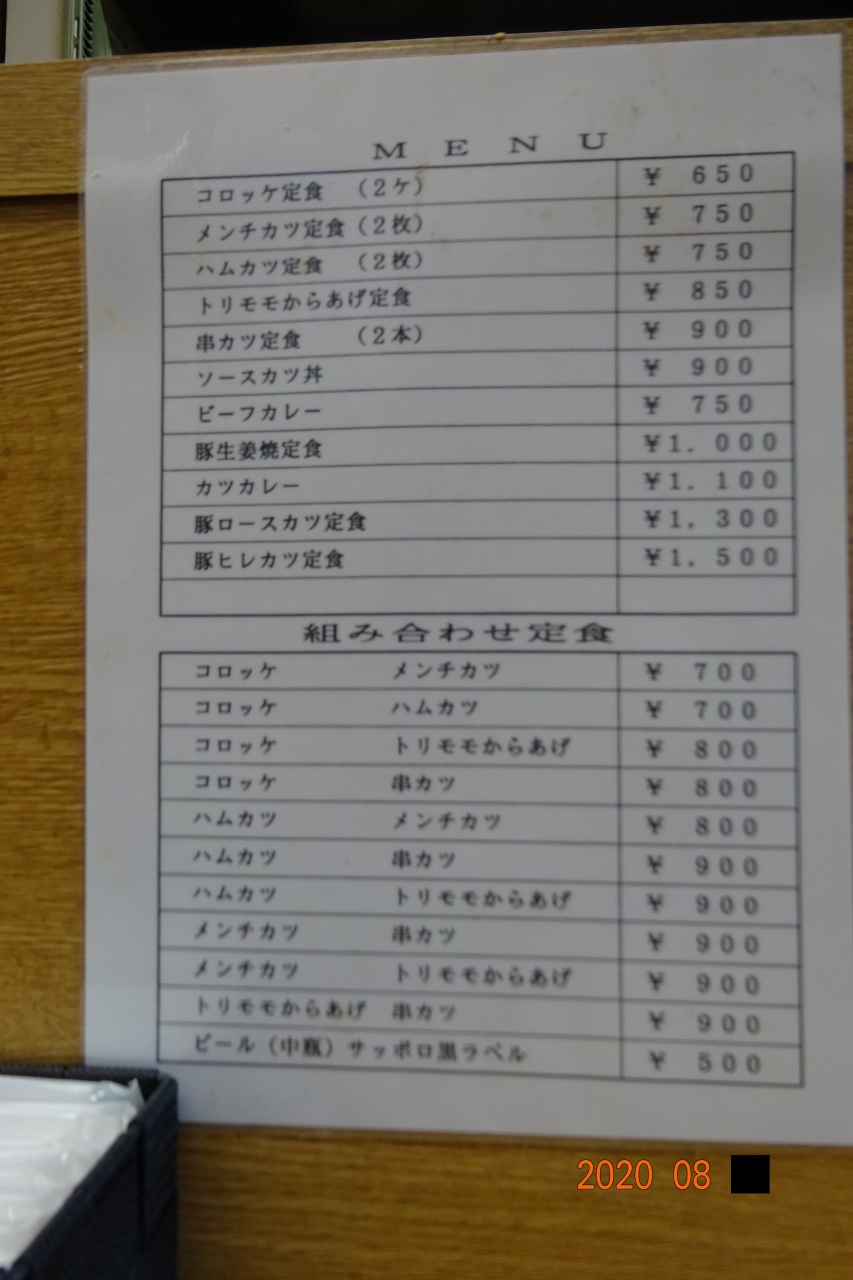 MENU
コロッケ定食 (2ケ) ¥ 650
メンチカツ定食(2枚) ¥ 750
ハムカツ定食 (2枚) ¥ 750
トリモモからあげ定食 ¥ 850
串カツ定食 (2本) ¥ 900
ソースカツ丼 ¥ 900
ビーフカレー ¥ 750
豚生姜焼定食 ¥1.000
カツカレー ¥1.100
豚ロースカツ定食 ¥1.300
豚ヒレカツ定食 ¥1.500
組み合わせ定食
コロッケ メンチカツ ¥ 700
コロッケ ハムカツ ¥ 700
コロッケ トリモモからあげ ¥ 800
コロッケ 串カツ ¥ 800
ハムカツ メンチカツ ¥ 800
ハムカツ 串カツ ¥ 900
ハムカツ トリモモからあげ ¥ 900
メンチカツ 串カツ ¥ 900
メンチカツ トリモモからあげ ¥ 900
トリモモからあげ 串カツ ¥ 900
ビール(中瓶)サッポロ黒ラベル ¥ 500
2020 08